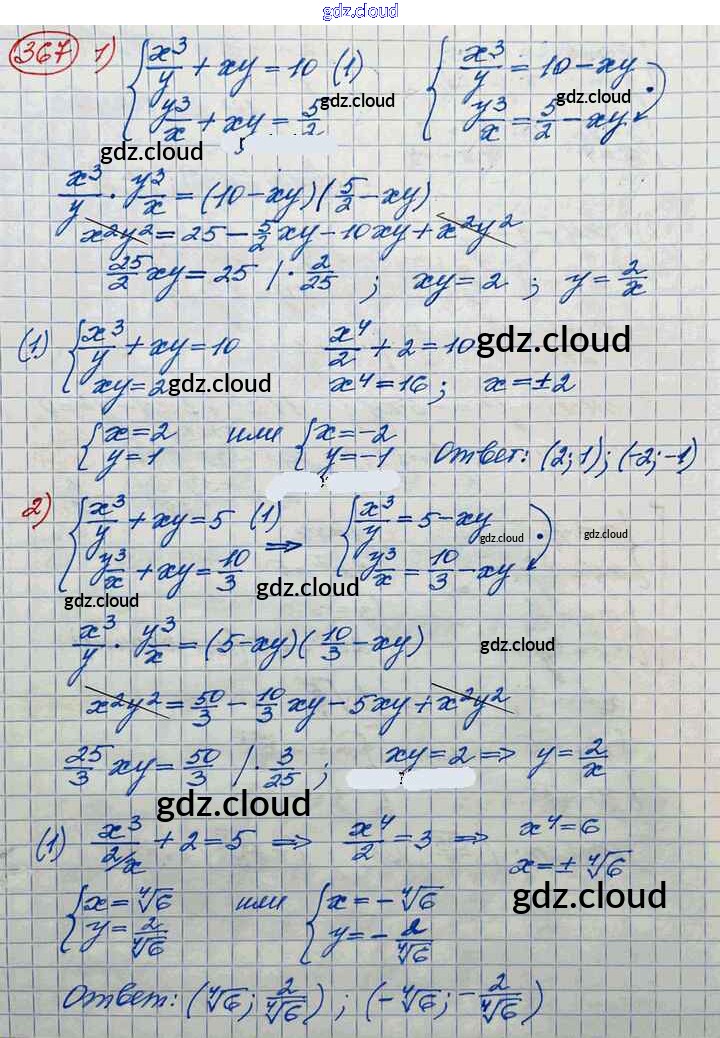 gdz.cloud
367 1) { x³/y + xy = 10 (1) { x³/y = 10 - xy
{ y³/x + xy = 5/2 { y³/x = 5/2 - xy ·
gdz.cloud gdz.cloud
gdz.cloud
x³/y · y³/x = (10 - xy)(5/2 - xy)
x²y² = 25 - 5/2 xy - 10xy + x²y²
25/2 xy = 25 | · 2/25 ; xy = 2 ; y = 2/x
(1) { x³/y + xy = 10 x⁴/2 + 2 = 10 gdz.cloud
{ xy = 2 gdz.cloud x⁴ = 16 ; x = ±2
{ x = 2 или { x = -2
{ y = 1 { y = -1 Ответ: (2; 1); (-2; -1)
2) { x³/y + xy = 5 (1) ⇒ { x³/y = 5 - xy
{ y³/x + xy = 10/3 { y³/x = 10/3 - xy ·
gdz.cloud gdz.cloud
gdz.cloud gdz.cloud
x³/y · y³/x = (5 - xy)(10/3 - xy) gdz.cloud
x²y² = 50/3 - 10/3 xy - 5xy + x²y²
25/3 xy = 50/3 | · 3/25 ; xy = 2 ⇒ y = 2/x
gdz.cloud
(1) x³/(2/x) + 2 = 5 ⇒ x⁴/2 = 3 ⇒ x⁴ = 6
x = ± ⁴√6
gdz.cloud
{ x = ⁴√6 или { x = - ⁴√6
{ y = 2/⁴√6 { y = - 2/⁴√6
Ответ: (⁴√6; 2/⁴√6) ; (-⁴√6; - 2/⁴√6)